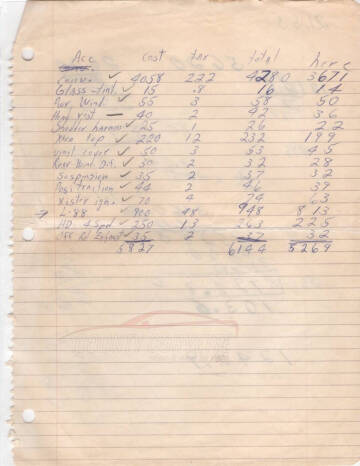 Acc cost tax total here
4058 222 4280 3671
Glass-tint ✓ 15 .8 16 14
Pow. Wind ✓ 55 3 58 50
Head rest — 40 2 42 36
Shoulder harness ✓ 25 1 26 22
Xtra top ✓ 220 12 232 199
vinil cover ✓ 50 3 53 45
Rear Wind. Def. ✓ 30 2 32 28
Suspension ✓ 35 2 37 32
Positraction ✓ 44 2 46 39
ign. ✓ 70 4 74 63
→ L-88 ✓ 900 48 948 813
HD. 4 Spd ✓ 250 13 263 225
Off Rd Exhaust ✓ 35 2 37 32
5827 6144 5269